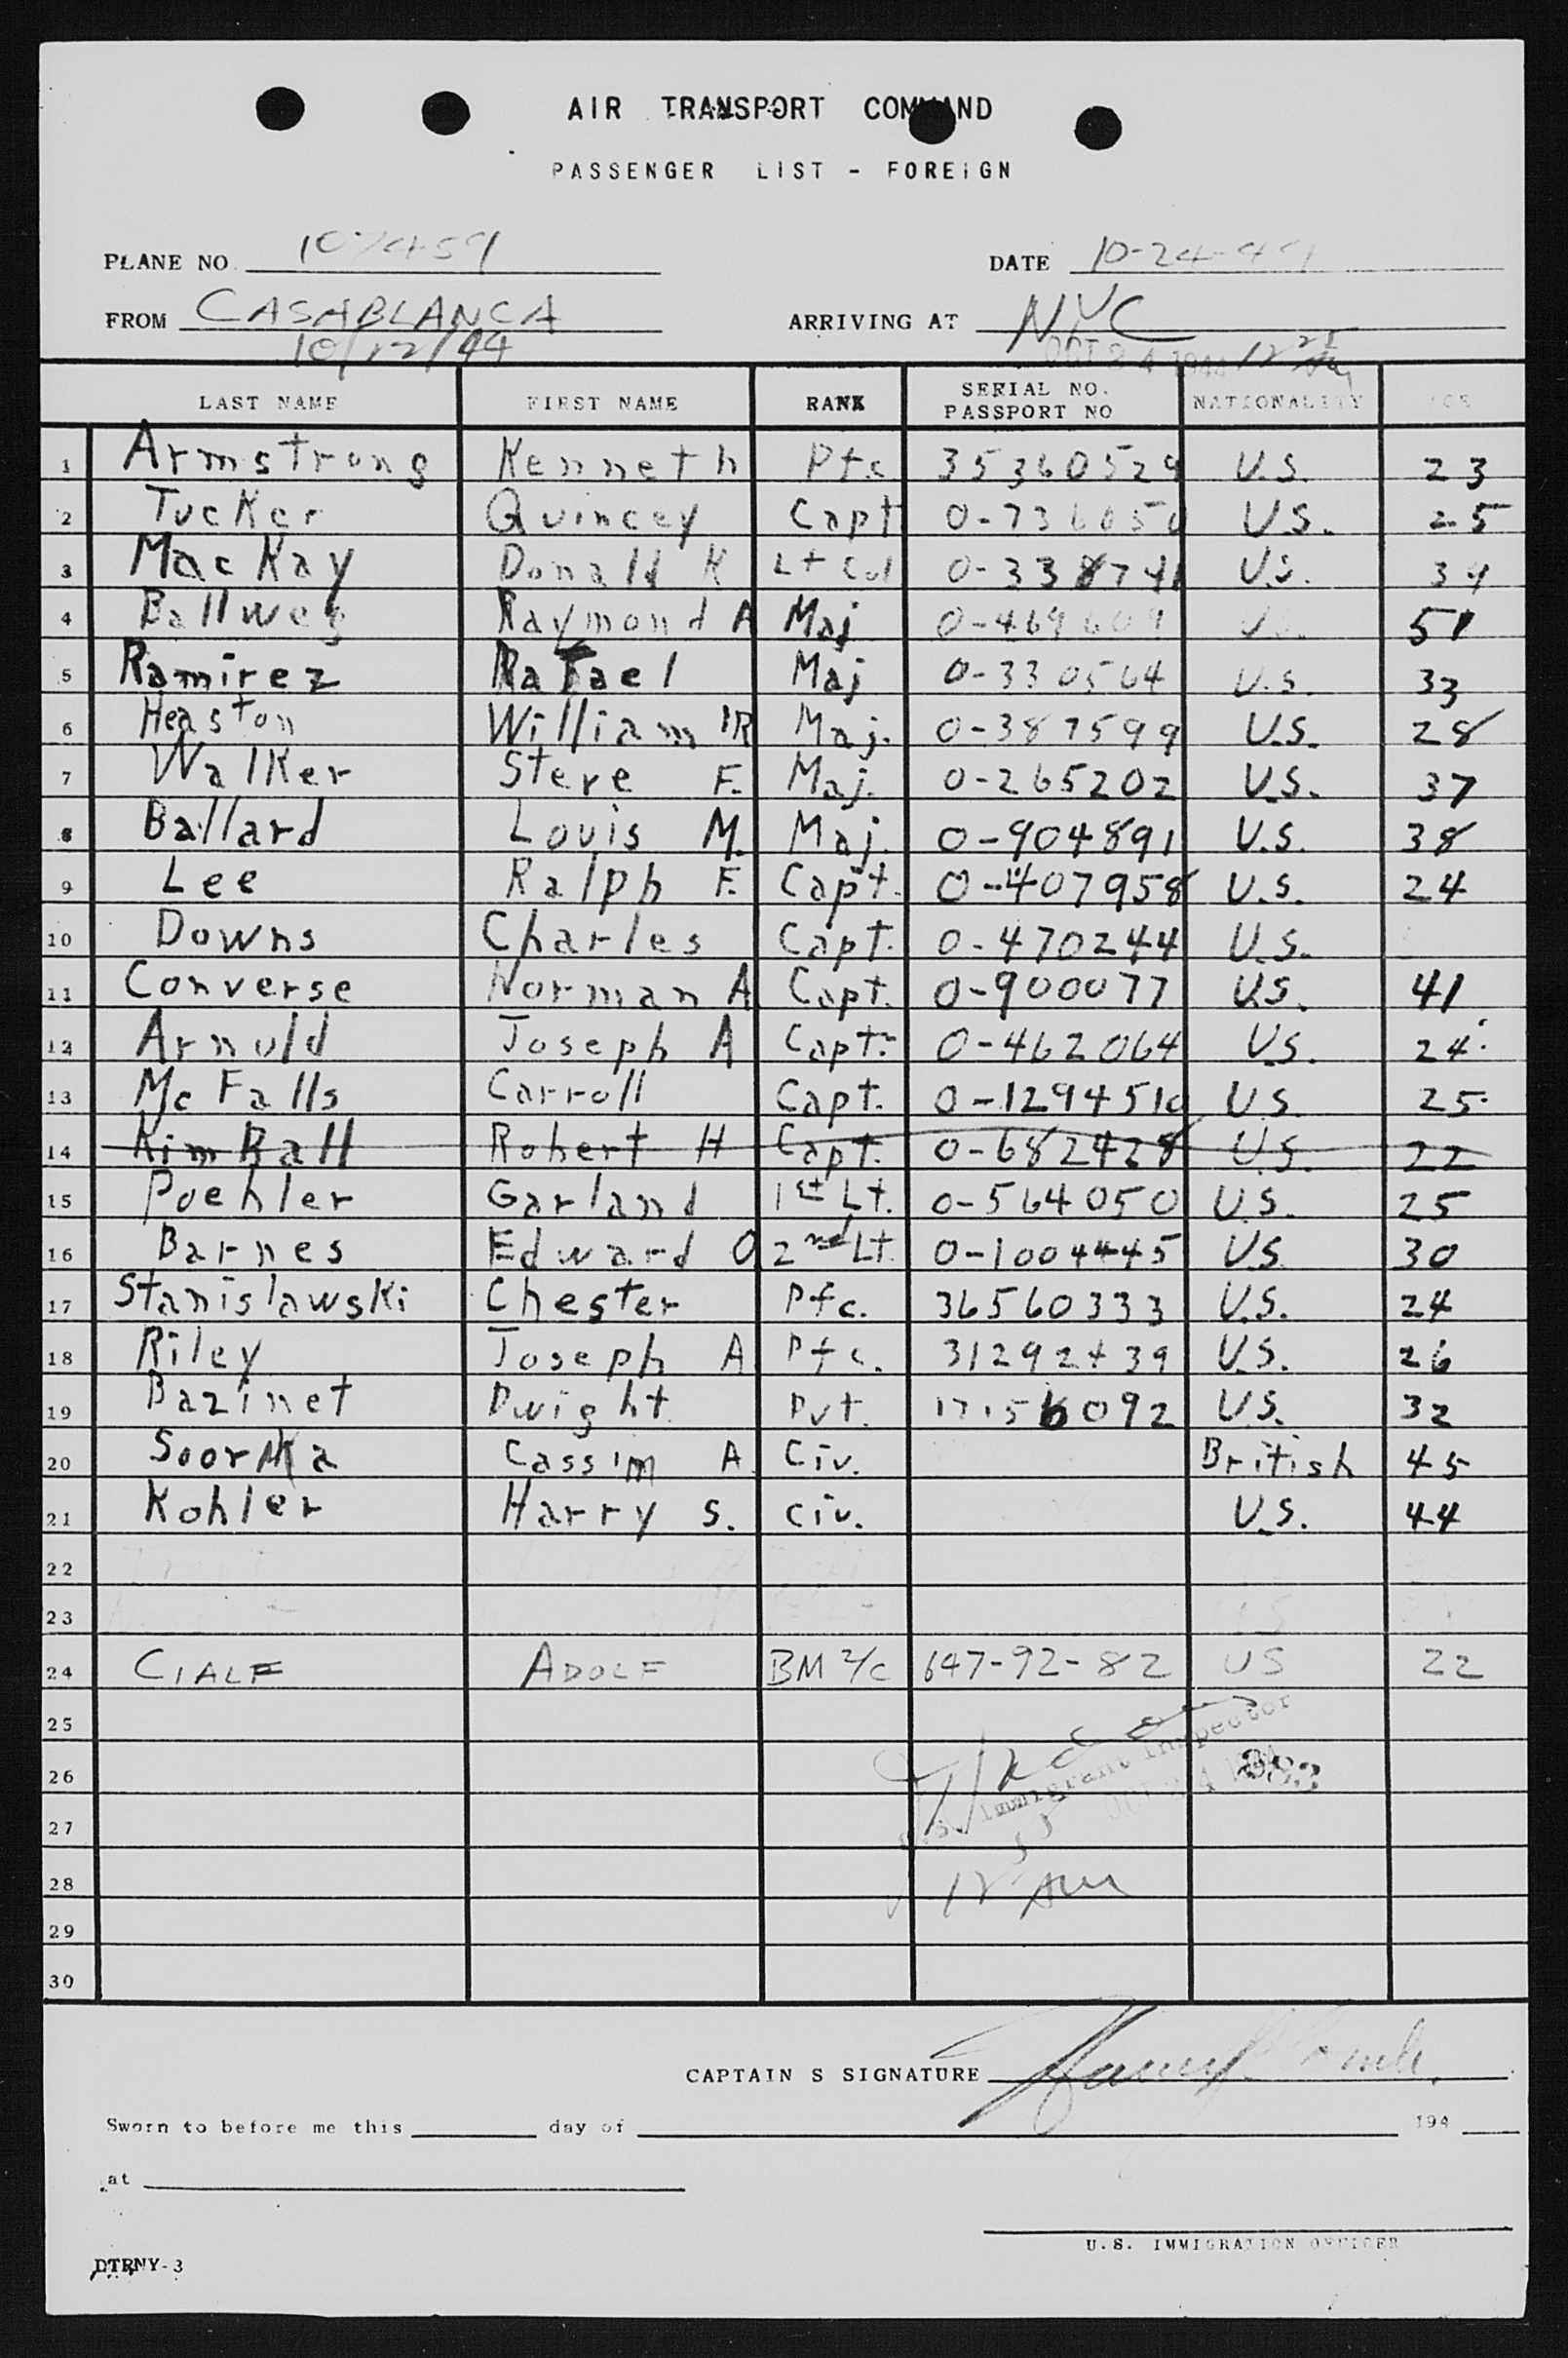 AIR TRANSPORT COMMAND
PASSENGER LIST - FOREIGN
PLANE NO. DATE 10-24-44
FROM CASABLANCA ARRIVING AT NYC
10/12/44 OCT 24 1944
LAST NAME FIRST NAME RANK SERIAL NO. PASSPORT NO NATIONALITY AGE
1 Armstrong Kenneth Pfc 35360529 U.S. 23
2 Tucker Quincey Capt U.S. 25
3 MacKay Donald K Lt Col 0-338741 U.S. 34
4 Ballweg Raymond A Maj 0-469609 51
5 Ramirez Rafael Maj 0-330564 U.S. 33
6 Heaston William R Maj. 0-387599 U.S. 28
7 Walker Steve F. Maj. 0-265202 U.S. 37
8 Ballard Louis M. Maj. 0-904891 U.S. 38
9 Lee Ralph F. Capt. 0-407958 U.S. 24
10 Downs Charles Capt. 0-470244 U.S.
11 Converse Norman A Capt. 0-900077 U.S. 41
12 Arnold Joseph A Capt. 0-462064 U.S. 24
13 McFalls Carroll Capt. 0-1294510 U.S. 25
14 KimBall Robert H Capt. 0-682428 U.S. 22
15 Poehler Garland 1st Lt. 0-564050 U.S. 25
16 Barnes Edward O 2nd Lt. 0-1004445 U.S. 30
17 Stanislawski Chester Pfc. 36560333 U.S. 24
18 Riley Joseph A Pfc. 31292439 U.S. 26
19 Bazinet Dwight Pvt. 17156092 U.S. 32
20 Cassim A Civ. British 45
21 Kohler Harry S. Civ. U.S. 44
22
23
24 CIALF ADOLF BM 2/C 647-92-82 US 22
25
26 U.S. Immigrant Inspector
27
28 12 AM
29
30
CAPTAIN S SIGNATURE
Sworn to before me this day of 194
at
U.S. IMMIGRATION OFFICER
DTRNY-3